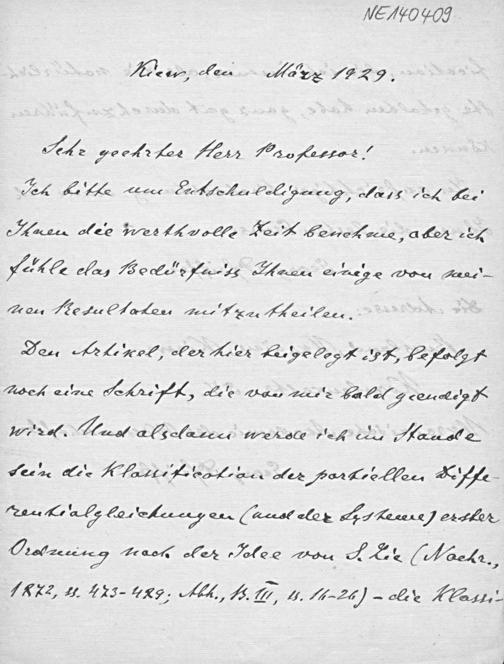 NE140409
Kiew, den März 1929.
Sehr geehrter Herr Professor!
Ich bitte um Entschuldigung, dass ich bei
Ihnen die werthvolle Zeit benehme, aber ich
fühle das Bedürfniss Ihnen einige von mei-
nen Resultaten mitzutheilen.
Den Artikel, der hier beigelegt ist, befolgt
noch eine Schrift, die von mir bald geendigt
wird. Und alsdann werde ich im Stande
sein die Klassification der partiellen Diffe-
rentialgleichungen (und der Systeme) erster
Ordnung nach der Idee von S. Lie (Nachr.,
1872, ss. 473-489; Abh., B. III, ss. 16-26) - die Klassi-